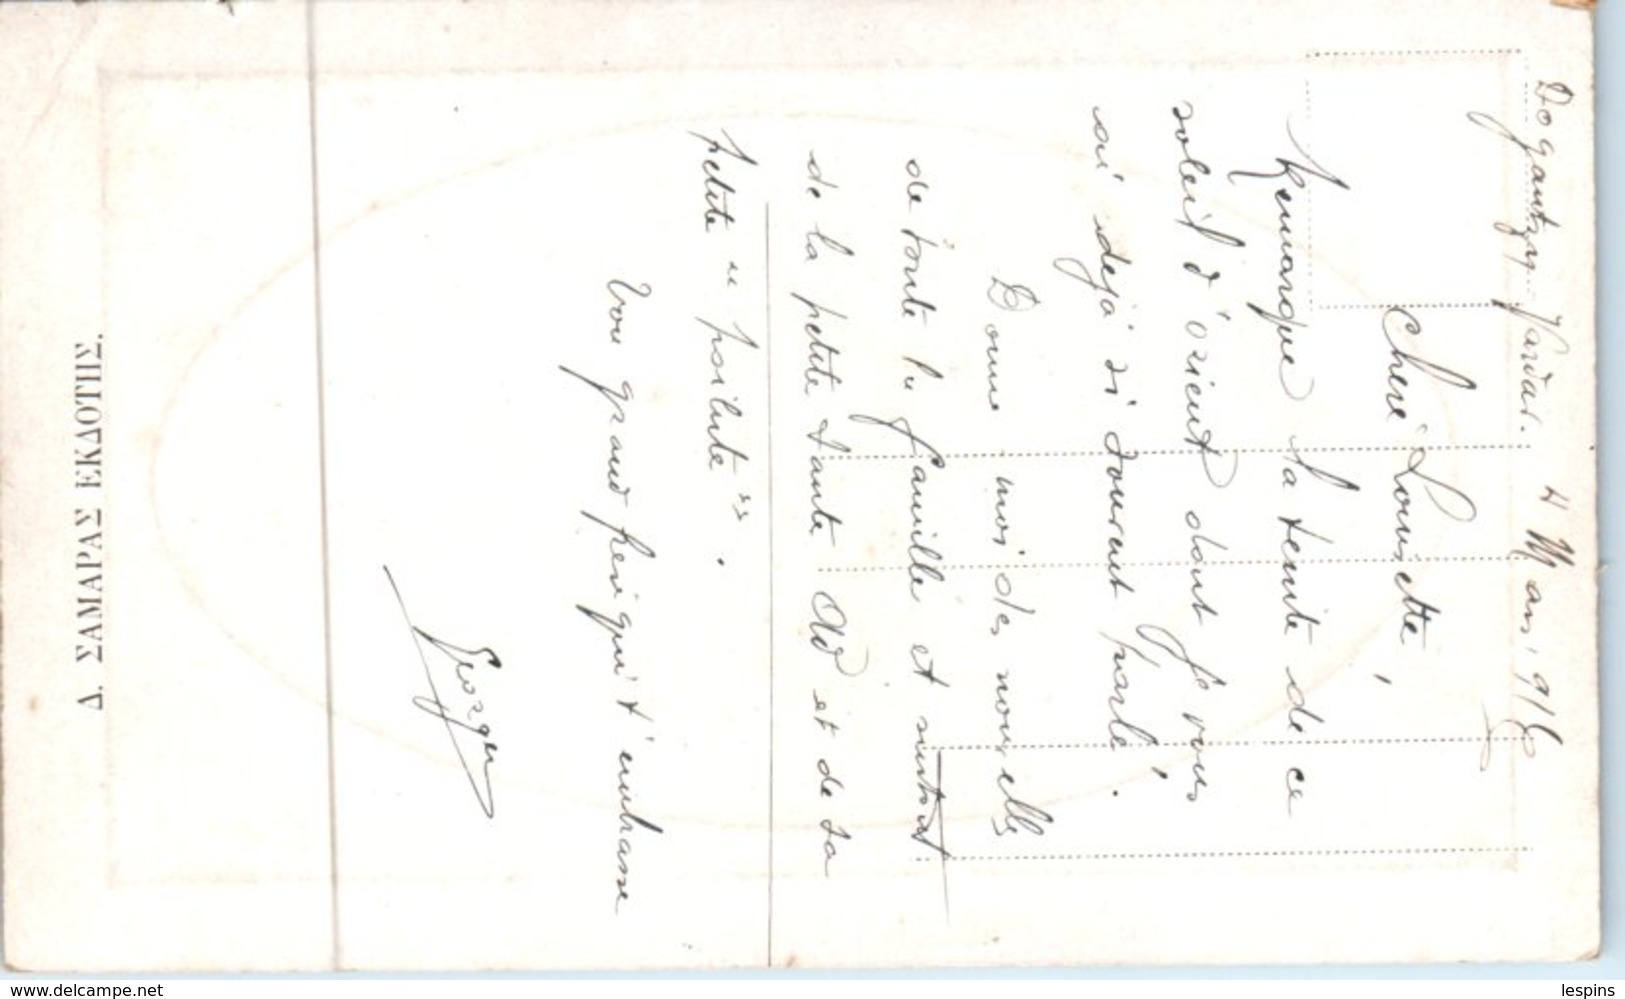 Dogantzy Vardar. 4 Mars 1916
Cheré Lousette,
Remarque la teinte de ce
soleil d'orient dont je vous
ai dejà si souvent parlé.
Donne-moi des nouvelles
de toute la famille et surtout
de la petite tante Ad et de sa
petite "
Ton grand frère qui t'embrasse
Georges
Δ. ΣΑΜΑΡΑΣ ΕΚΔΟΤΗΣ.
www.delcampe.net
lespins